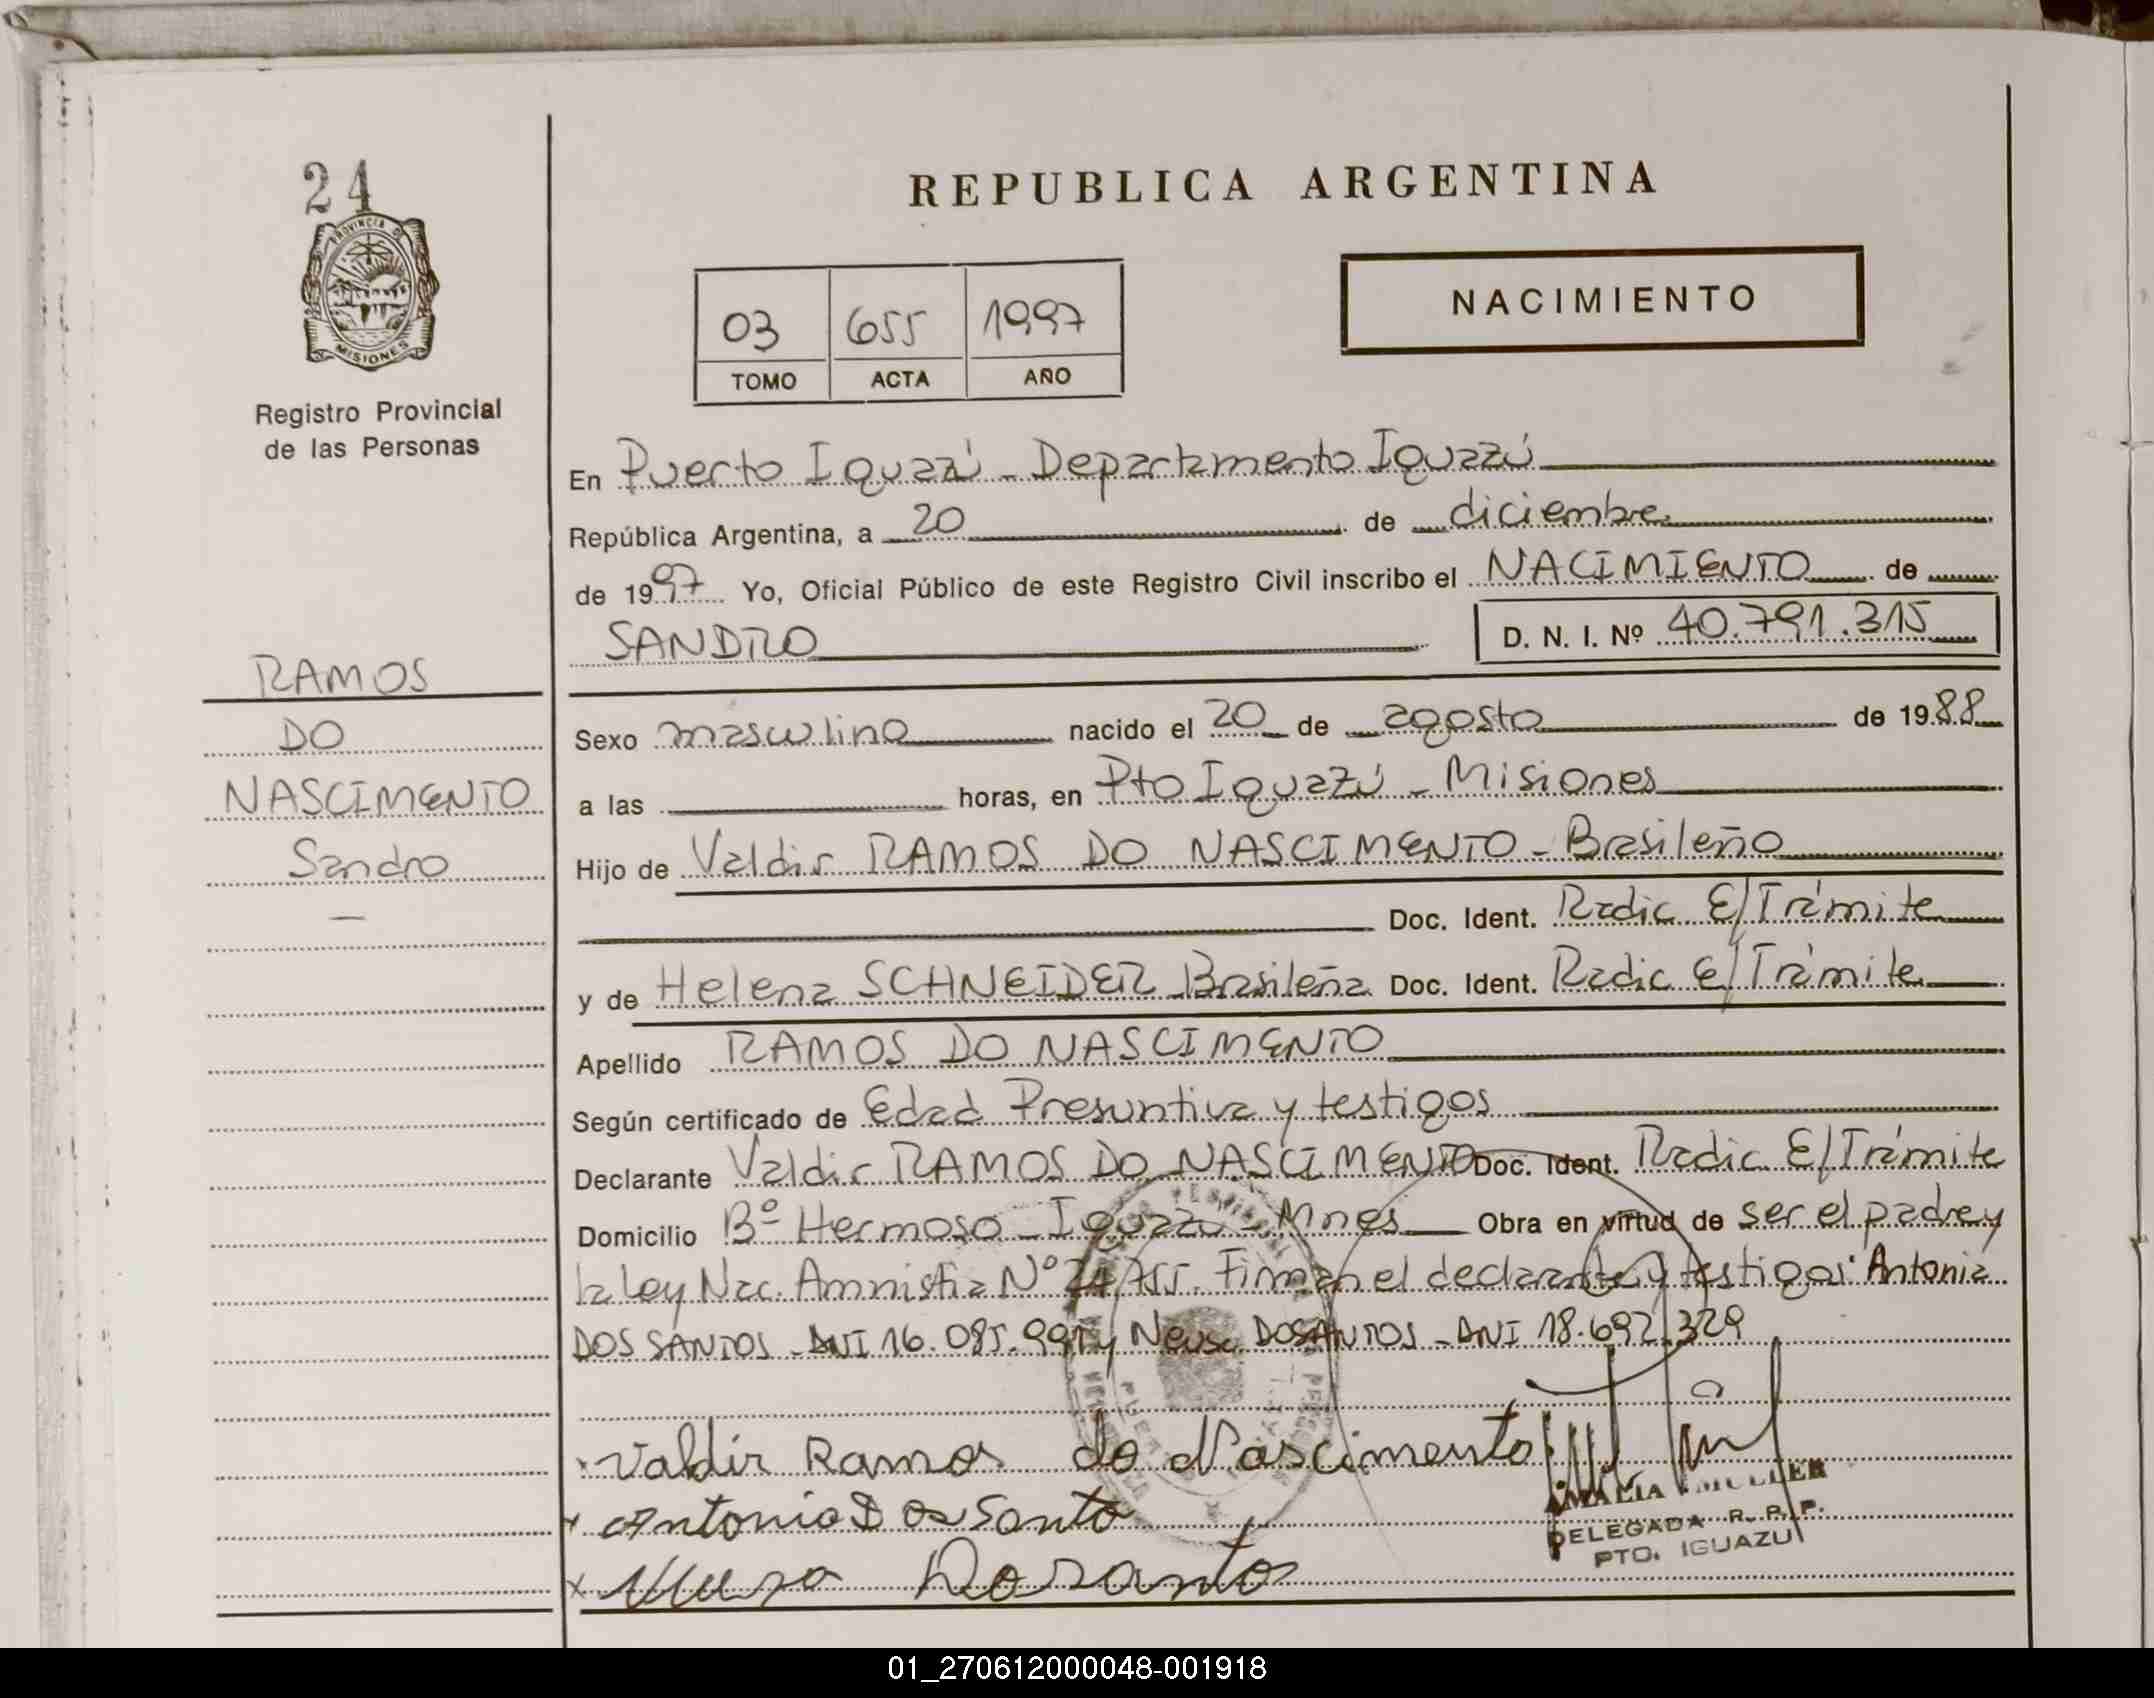 24
PROVINCIA DE
MISIONES
Registro Provincial
de las Personas
REPUBLICA ARGENTINA
03 655 1997
TOMO ACTA AÑO
NACIMIENTO
En Puerto Iguazú - Departamento Iguazú
República Argentina, a 20 de diciembre
de 1997 Yo, Oficial Público de este Registro Civil inscribo el NACIMIENTO de
SANDRO D. N. I. Nº 40.791.315
RAMOS
DO
NASCIMENTO
Sandro
Sexo masculino nacido el 20 de agosto de 1988
a las horas, en Pto Iguazú - Misiones
Hijo de Valdir RAMOS DO NASCIMENTO - Brasileño
Doc. Ident. Radic E/Trámite
y de Helena SCHNEIDER Brasileña Doc. Ident. Radic E/Trámite
Apellido RAMOS DO NASCIMENTO
Según certificado de Edad Presuntiva y testigos
Declarante Valdir RAMOS DO NASCIMENTO Doc. Ident. Radic E/Trámite
Domicilio Bº Hermoso - Iguazú - Mnes Obra en virtud de ser el padre y
la Ley Nac. Amnistia Nº 24.755. Firman el declarante y testigos: Antonia
DOS SANTOS - DNI 16.085.991 y Neusa DOSANTOS - DNI 18.692.329
Valdir Ramos do Nascimento
Antonia Dos Santo
Neusa Dosantos
AMALIA MULLER
DELEGADA R. P. P.
PTO. IGUAZU
01_270612000048-001918